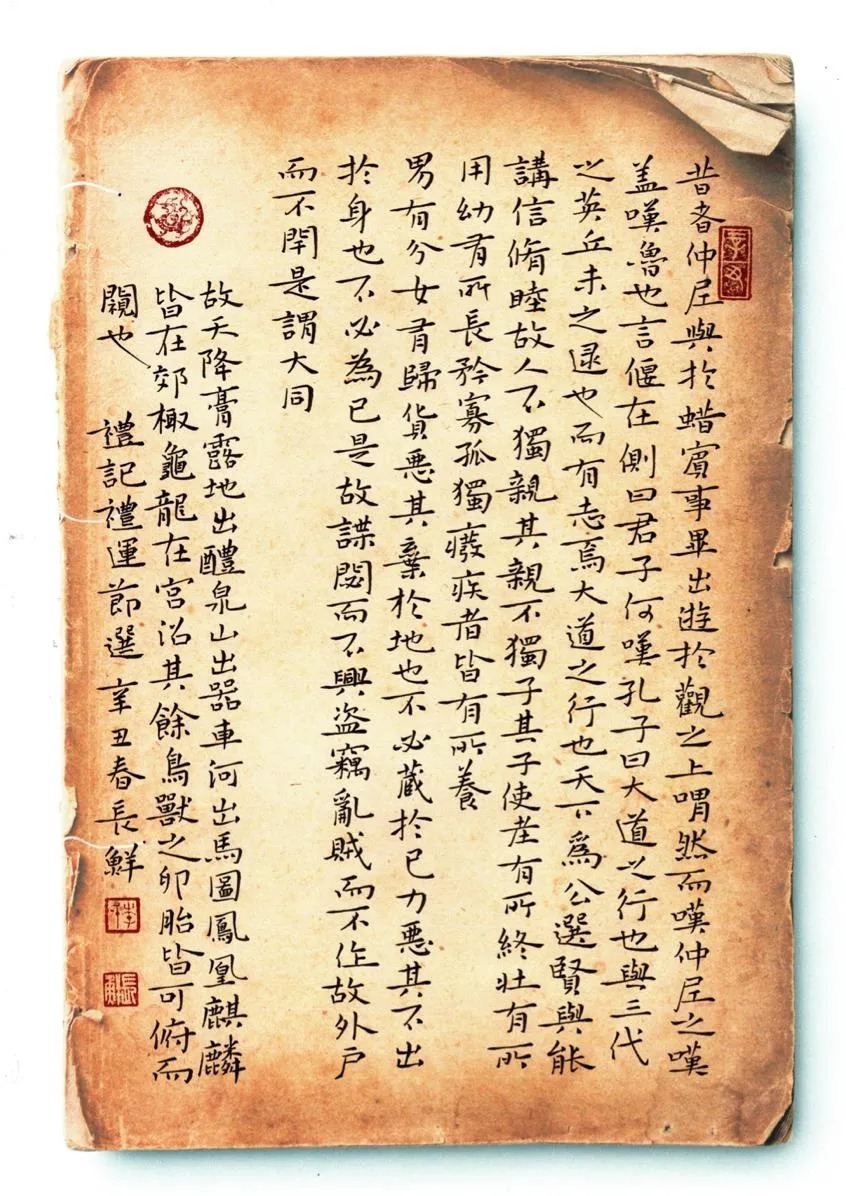 昔者仲尼與於蜡賓事畢出遊於觀之上喟然而嘆仲尼之嘆
盖嘆魯也言偃在側曰君子何嘆孔子曰大道之行也與三代
之英丘未之逮也而有志焉大道之行也天下爲公選賢與能
講信脩睦故人不獨親其親不獨子其子使老有所終壯有所
用幼有所長矜寡孤獨癈疾者皆有所養
男有分女有歸貨悪其棄於地也不必蔵於己力悪其不出
於身也不必為己是故謀閉而不興盗竊亂賊而不作故外户
而不閉是謂大同
故天降膏露地出醴泉山出器車河出馬圖鳳凰麒麟
皆在郊棷龜龍在宮沼其餘鳥獸之卵胎皆可俯而
闚也 禮記禮運節選 辛丑春長鮮